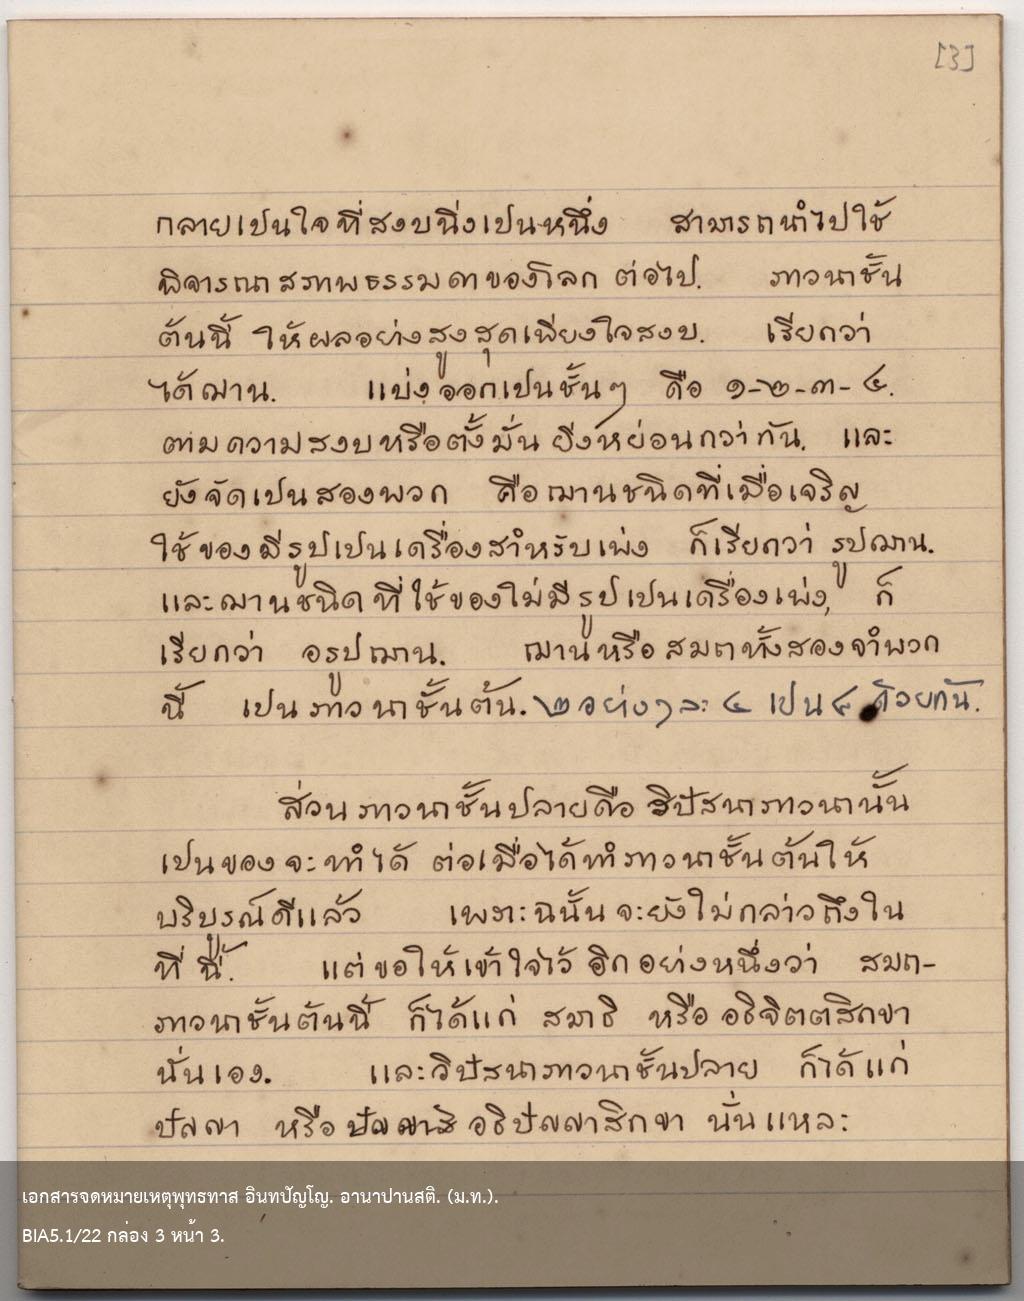 [3]
กลายเปนใจที่สงบนิ่งเปนหนึ่ง สามารถนำไปใช้
พิจารณาสภาพธรรมดาของโลก ต่อไป. ภาวนาชั้น
ต้นนี้ ให้ผลอย่างสูงสุดเพียงใจสงบ. เรียกว่า
ได้ฌาน. แบ่งออกเปนชั้นๆ คือ ๑-๒-๓-๔.
ตามความสงบหรือตั้งมั่น ยิ่งหย่อนกว่ากัน. และ
ยังจัดเปนสองพวก คือฌานชนิดที่เมื่อเจริญ
ใช้ของมีรูปเปนเครื่องสำหรับเพ่ง ก็เรียกว่า รูปฌาน.
และฌานชนิดที่ใช้ของไม่มีรูปเปนเครื่องเพ่ง, ก็
เรียกว่า อรูปฌาน. ฌานหรือสมถทั้งสองจำพวก
นี้ เปนภาวนาชั้นต้น. ๒ อย่างๆ ละ ๔ เปน ๘ ด้วยกัน.
ส่วนภาวนาชั้นปลายคือ วิปัสนาภาวนานั้น
เปนของจะทำได้ ต่อเมื่อได้ทำภาวนาชั้นต้นให้
บริบูรณ์ดีแล้ว เพราะฉนั้นจะยังไม่กล่าวถึงใน
ที่นี้. แต่ขอให้เข้าใจไว้อีกอย่างหนึ่งว่า สมถ-
ภาวนาชั้นต้นนี้ ก็ได้แก่ สมาธิ หรือ อธิจิตตสิกขา
นั่นเอง. และวิปัสนาภาวนาชั้นปลาย ก็ได้แก่
ปัญญา หรือ อธิปัญญาสิกขา นั่นแหละ
เอกสารจดหมายเหตุพุทธทาส อินทปัญโญ. อานาปานสติ. (ม.ท.).
BIA5.1/22 กล่อง 3 หน้า 3.